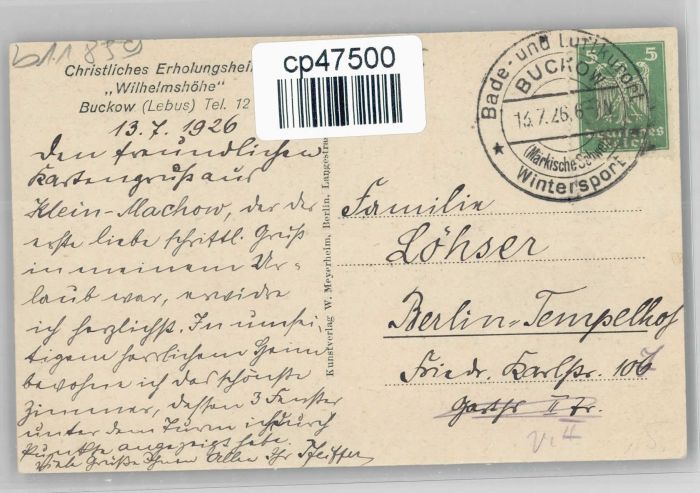 b11859
Christliches Erholungshei
„Wilhelmshöhe"
Buckow (Lebus) Tel. 12
cp47500
13.7.1926
Den freundlichen
Kartengruß aus
Klein-Machow, der der
erste liebe schriftl. Gruß
in meinem Ur-
laub war, erwidre
ich herzlichst. In umsei-
tigem herrlichem Heim
bewohne ich das schönste
Zimmer, dessen 3 Fenster
unter dem Turm ich durch
Punkte angezeigt habe.
Viele Grüße Ihnen Allen Ihr Pfeiffer
Kunstverlag W. Meyerheim, Berlin, Langestra
Bade- und Luftkurort
BUCKOW
13.7.26.6
(Märkische Schweiz)
Wintersport
5 5
Deutsches
Reich
Familie
Löhser
Berlin-Tempelhof
Friedr. Karlstr. 106
Gartfs II Tr.